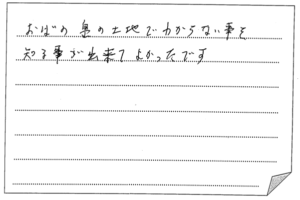 おばの 島の土地でわからない事を
知る事が出来てよかったです